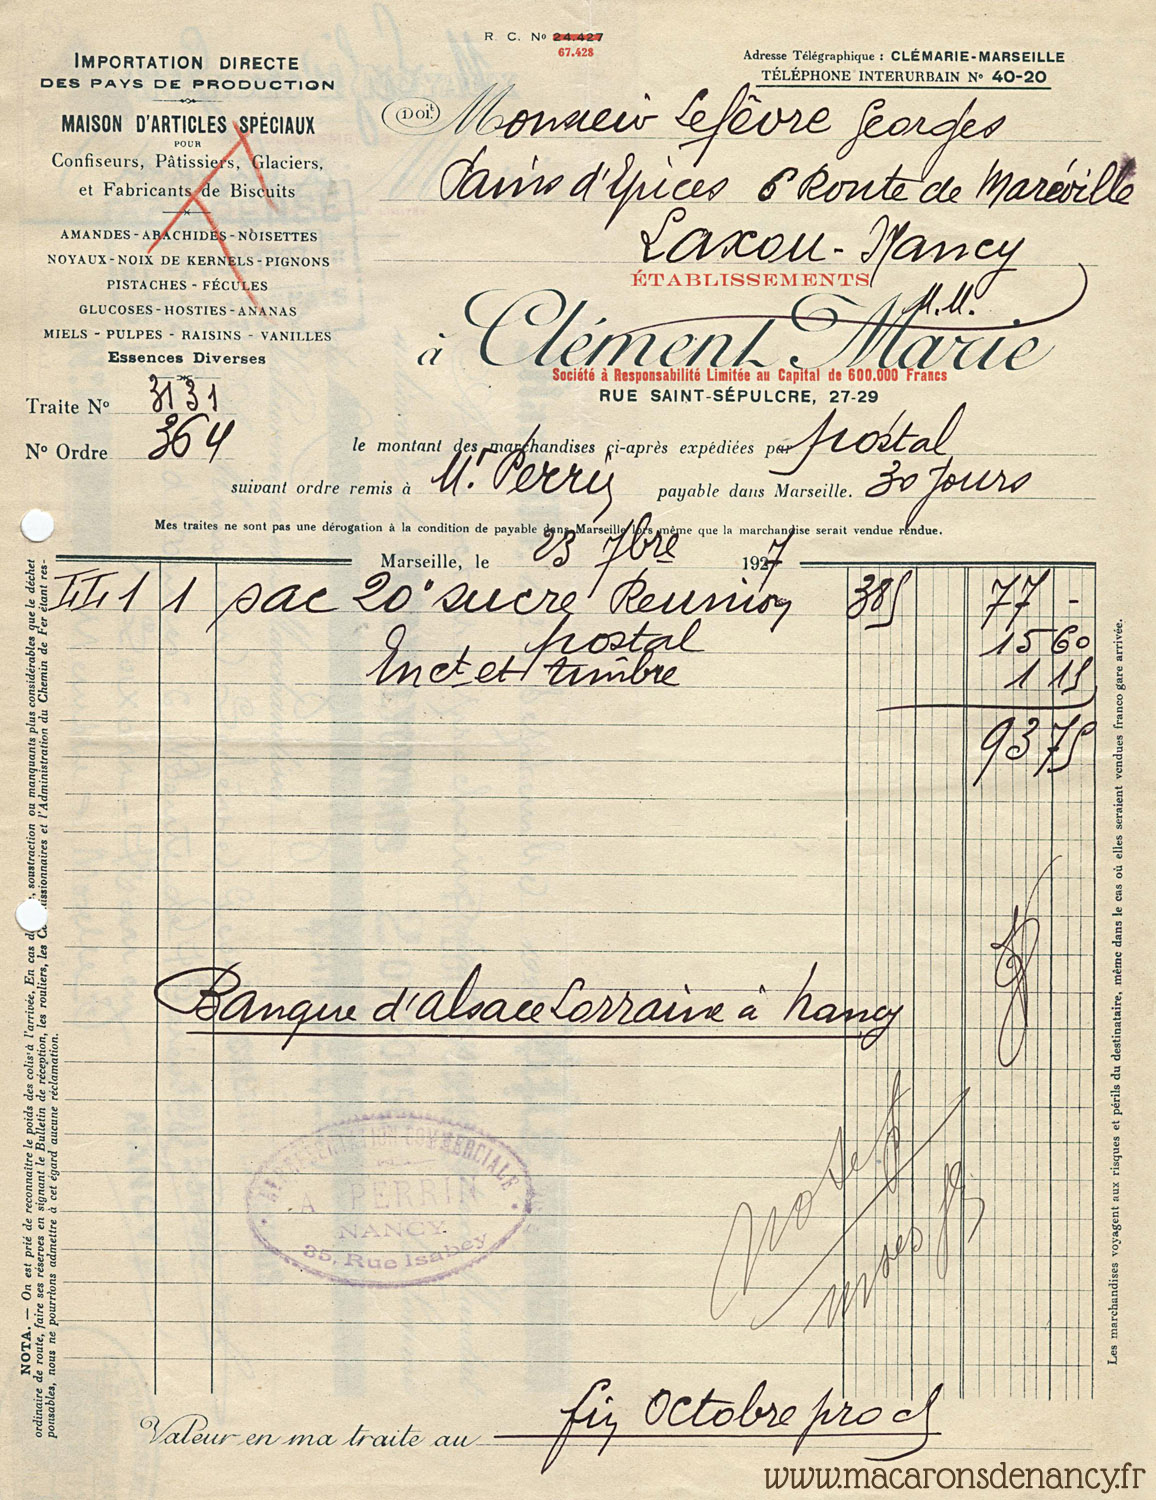 R. C. Nº 24.427
67.428
IMPORTATION DIRECTE
DES PAYS DE PRODUCTION
MAISON D'ARTICLES SPÉCIAUX
POUR
Confiseurs, Pâtissiers, Glaciers,
et Fabricants de Biscuits
AMANDES - ARACHIDES - NOISETTES
NOYAUX - NOIX DE KERNELS - PIGNONS
PISTACHES - FÉCULES
GLUCOSES - HOSTIES - ANANAS
MIELS - PULPES - RAISINS - VANILLES
Essences Diverses
Traite Nº 3131
Nº Ordre 364
Adresse Télégraphique : CLÉMARIE-MARSEILLE
TÉLÉPHONE INTERURBAIN Nº 40-20
Doit Monsieur Lefèvre Georges
Pains d'Epices 6 Route de Maréville
Laxou - Nancy
ÉTABLISSEMENTS
M.M.
à Clément Marie
Société à Responsabilité Limitée au Capital de 600.000 Francs
RUE SAINT-SÉPULCRE, 27-29
le montant des marchandises ci-après expédiées par postal
suivant ordre remis à Mr Perrin payable dans Marseille. 30 Jours
Mes traites ne sont pas une dérogation à la condition de payable dans Marseille lors même que la marchandise serait vendue rendue.
Marseille, le 23 7bre 1927
1 1 sac 20º sucre Réunion 385 77 -
postal 15 60
Enct et timbre 1 15
93 75
Banque d'Alsace Lorraine à Nancy
REPRÉSENTATION COMMERCIALE
A PERRIN
NANCY
35, Rue Isabey
Valeur en ma traite au fin Octobre proch
NOTA. — On est prié de reconnaître le poids des colis à l'arrivée. En cas de , soustraction ou manquants plus considérables que le déchet
ordinaire de route, faire ses réserves en signant le Bulletin de réception, les rouliers, les Commissionnaires et l'Administration du Chemin de Fer étant res-
ponsables, nous ne pourrions admettre à cet égard aucune réclamation.
Les marchandises voyagent aux risques et périls du destinataire, même dans le cas où elles seraient vendues franco gare arrivée.
www.macaronsdenancy.fr